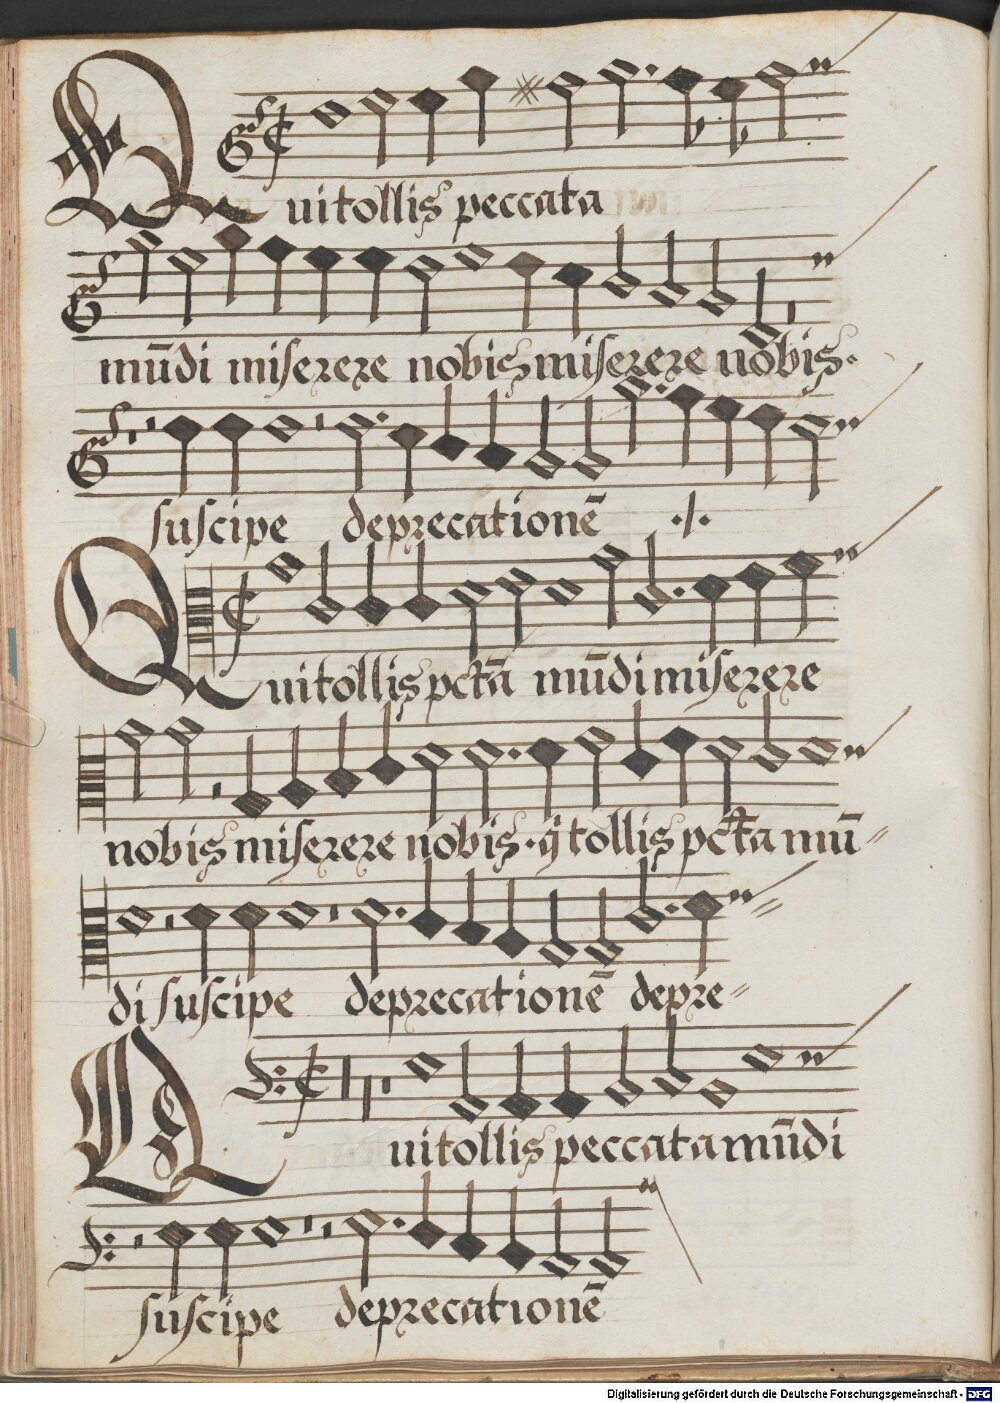 Qui tollis peccata
mūdi miserere nobis miserere nobis.
suscipe deprecationē ./.
Qui tollis pctā mūdi miserere
nobis miserere nobis. q̇ tollis pctā mū〃
di suscipe deprecationē depre〃
Qui tollis peccata mūdi
suscipe deprecationē
Digitalisierung gefördert durch die Deutsche Forschungsgemeinschaft - DFG